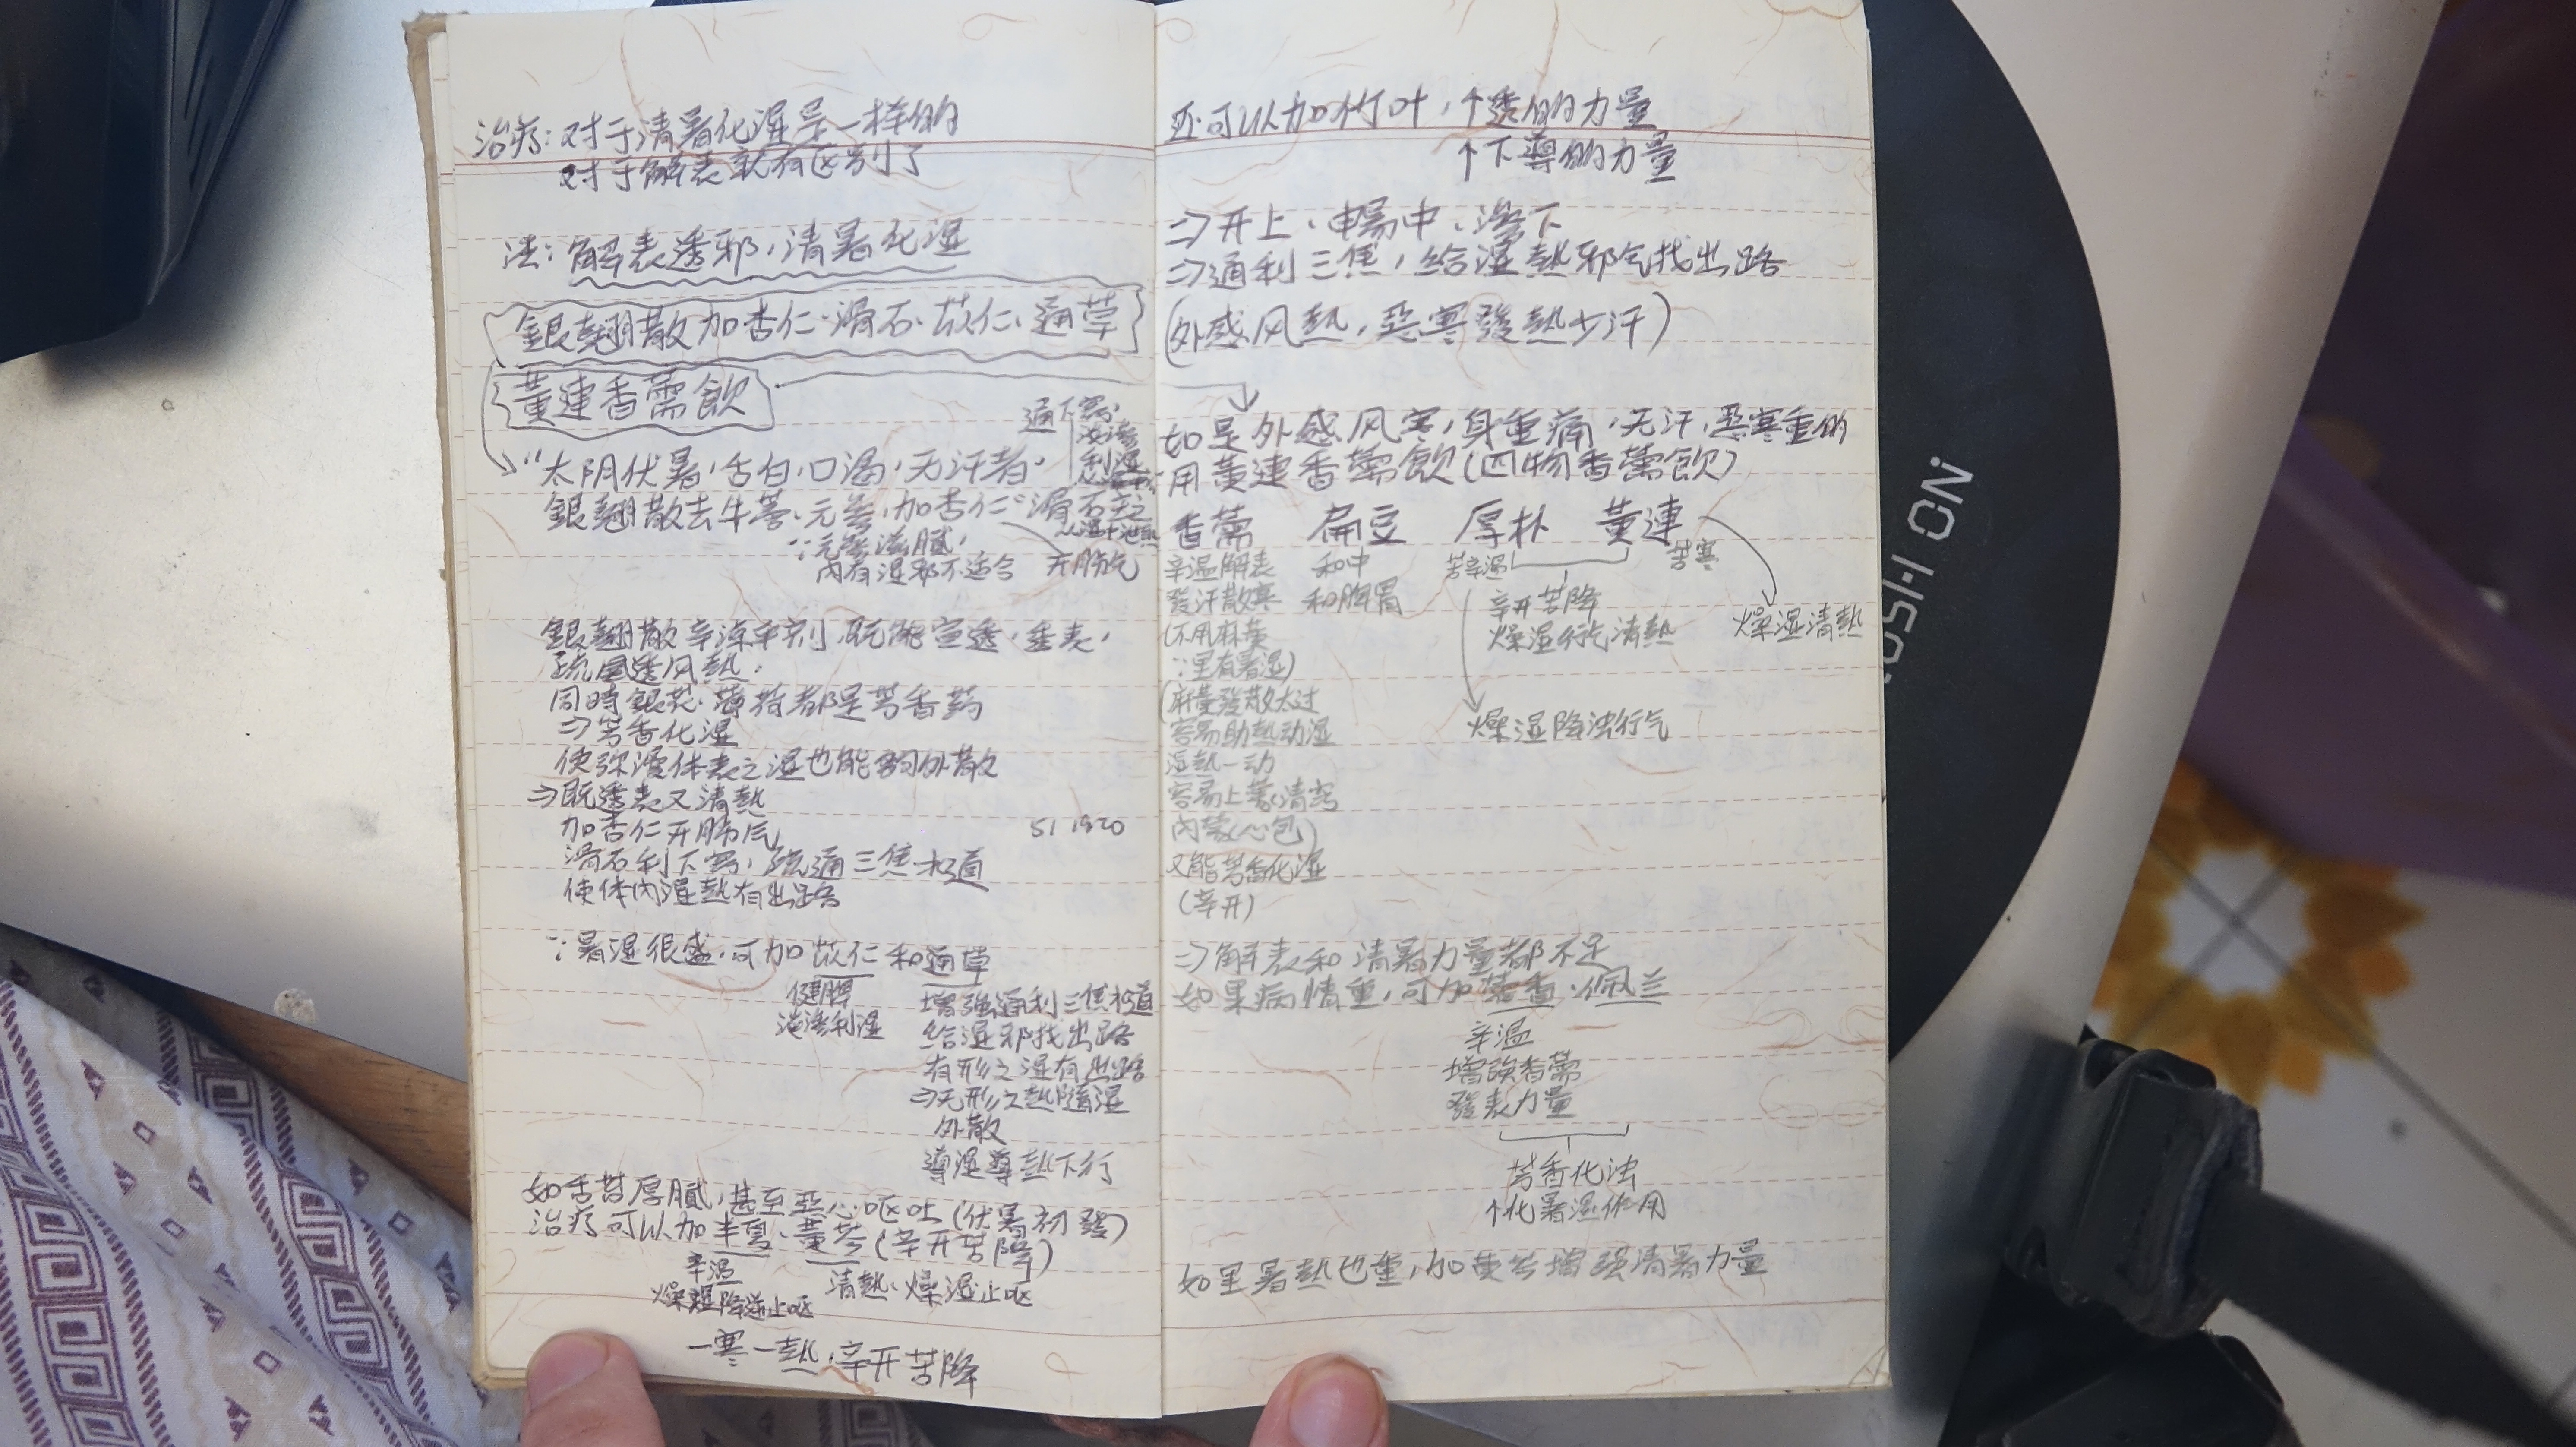 治疗：对于清暑化湿是一样的
对于解表就有区别了
法：解表透邪，清暑化湿
銀翹散加杏仁、滑石、苡仁、通草
黃連香薷飲
通下竅
淡滲
利湿
"太阴伏暑，舌白，口渴，无汗者，
銀翹散去牛蒡、元參，加杏仁"滑石主之
∵元參滋膩，
內有湿邪不适合
开肺气
銀翹散辛凉平剂，既能宣透、走表，
疏風透风熱；
同時銀花、薄荷都是芳香药
⇒芳香化湿
使弥漫体表之湿也能夠外散
⇒既透表又清熱
加杏仁开肺气
51 1920
滑石利下竅，疏通三焦水道
使体內湿熱有出路
∵暑湿很盛，可加苡仁和通草
健脾
淡滲利湿
增強通利三焦水道
给湿邪找出路
有形之湿有出路
⇒无形之熱隨湿
外散
導湿導熱下行
如舌苔厚膩，甚至惡心呕吐（伏暑初發）
治疗可以加半夏、黃芩（辛开苦降）
辛温
燥湿降逆止呕
清熱、燥湿止呕
一寒一熱，辛开苦降
还可以加竹叶，↑透的力量
↑下導的力量
⇒开上、暢中、滲下
⇒通利三焦，给湿熱邪气找出路
（外感风熱，惡寒發熱少汗）
如是外感风寒，身重痛，无汗，惡寒重的
用黃連香薷飲（四物香薷飲）
香薷 扁豆 厚朴 黃連
辛温解表
發汗散寒
（不用麻黃
∵里有暑湿）
（麻黃發散太过
容易助熱动湿
湿熱一动
容易上蒙清竅
內蒙心包）
又能芳香化湿
（辛开）
和中
和脾胃
苦辛温
苦寒
辛开苦降
燥湿行气清熱
燥湿清熱
燥湿降浊行气
⇒解表和清暑力量都不足
如果病情重，可加藿香、佩兰
辛温
增強香薷
發表力量
芳香化浊
↑化暑湿作用
如果暑熱也重，加黃芩增强清暑力量
NO HSO